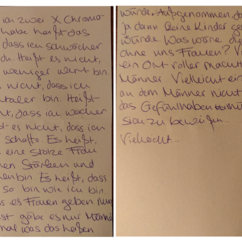 ich zwei X Chromo
habe heißt das
dass ich schwächer
Es heißt nicht,
weniger wert bin
nicht, dass ich
Heißt
dass ich
es nicht, dass ich
schaffe. Es heißt,
eine stolze Frau
Stärken und
bin. Es heißt, dass
so bin wie ich bin.
es Frauen geben
gäbe es nur Männer
mal was das heißen
würde. Aufgenommen,
ja dann keine Kinder
würde. Was wäre die
ohne uns Frauen?
ein Ort voller
Männer. Vielleicht
an dem Männer nicht
das Gefühl haben
sich zu beweisen.
Vielleicht...